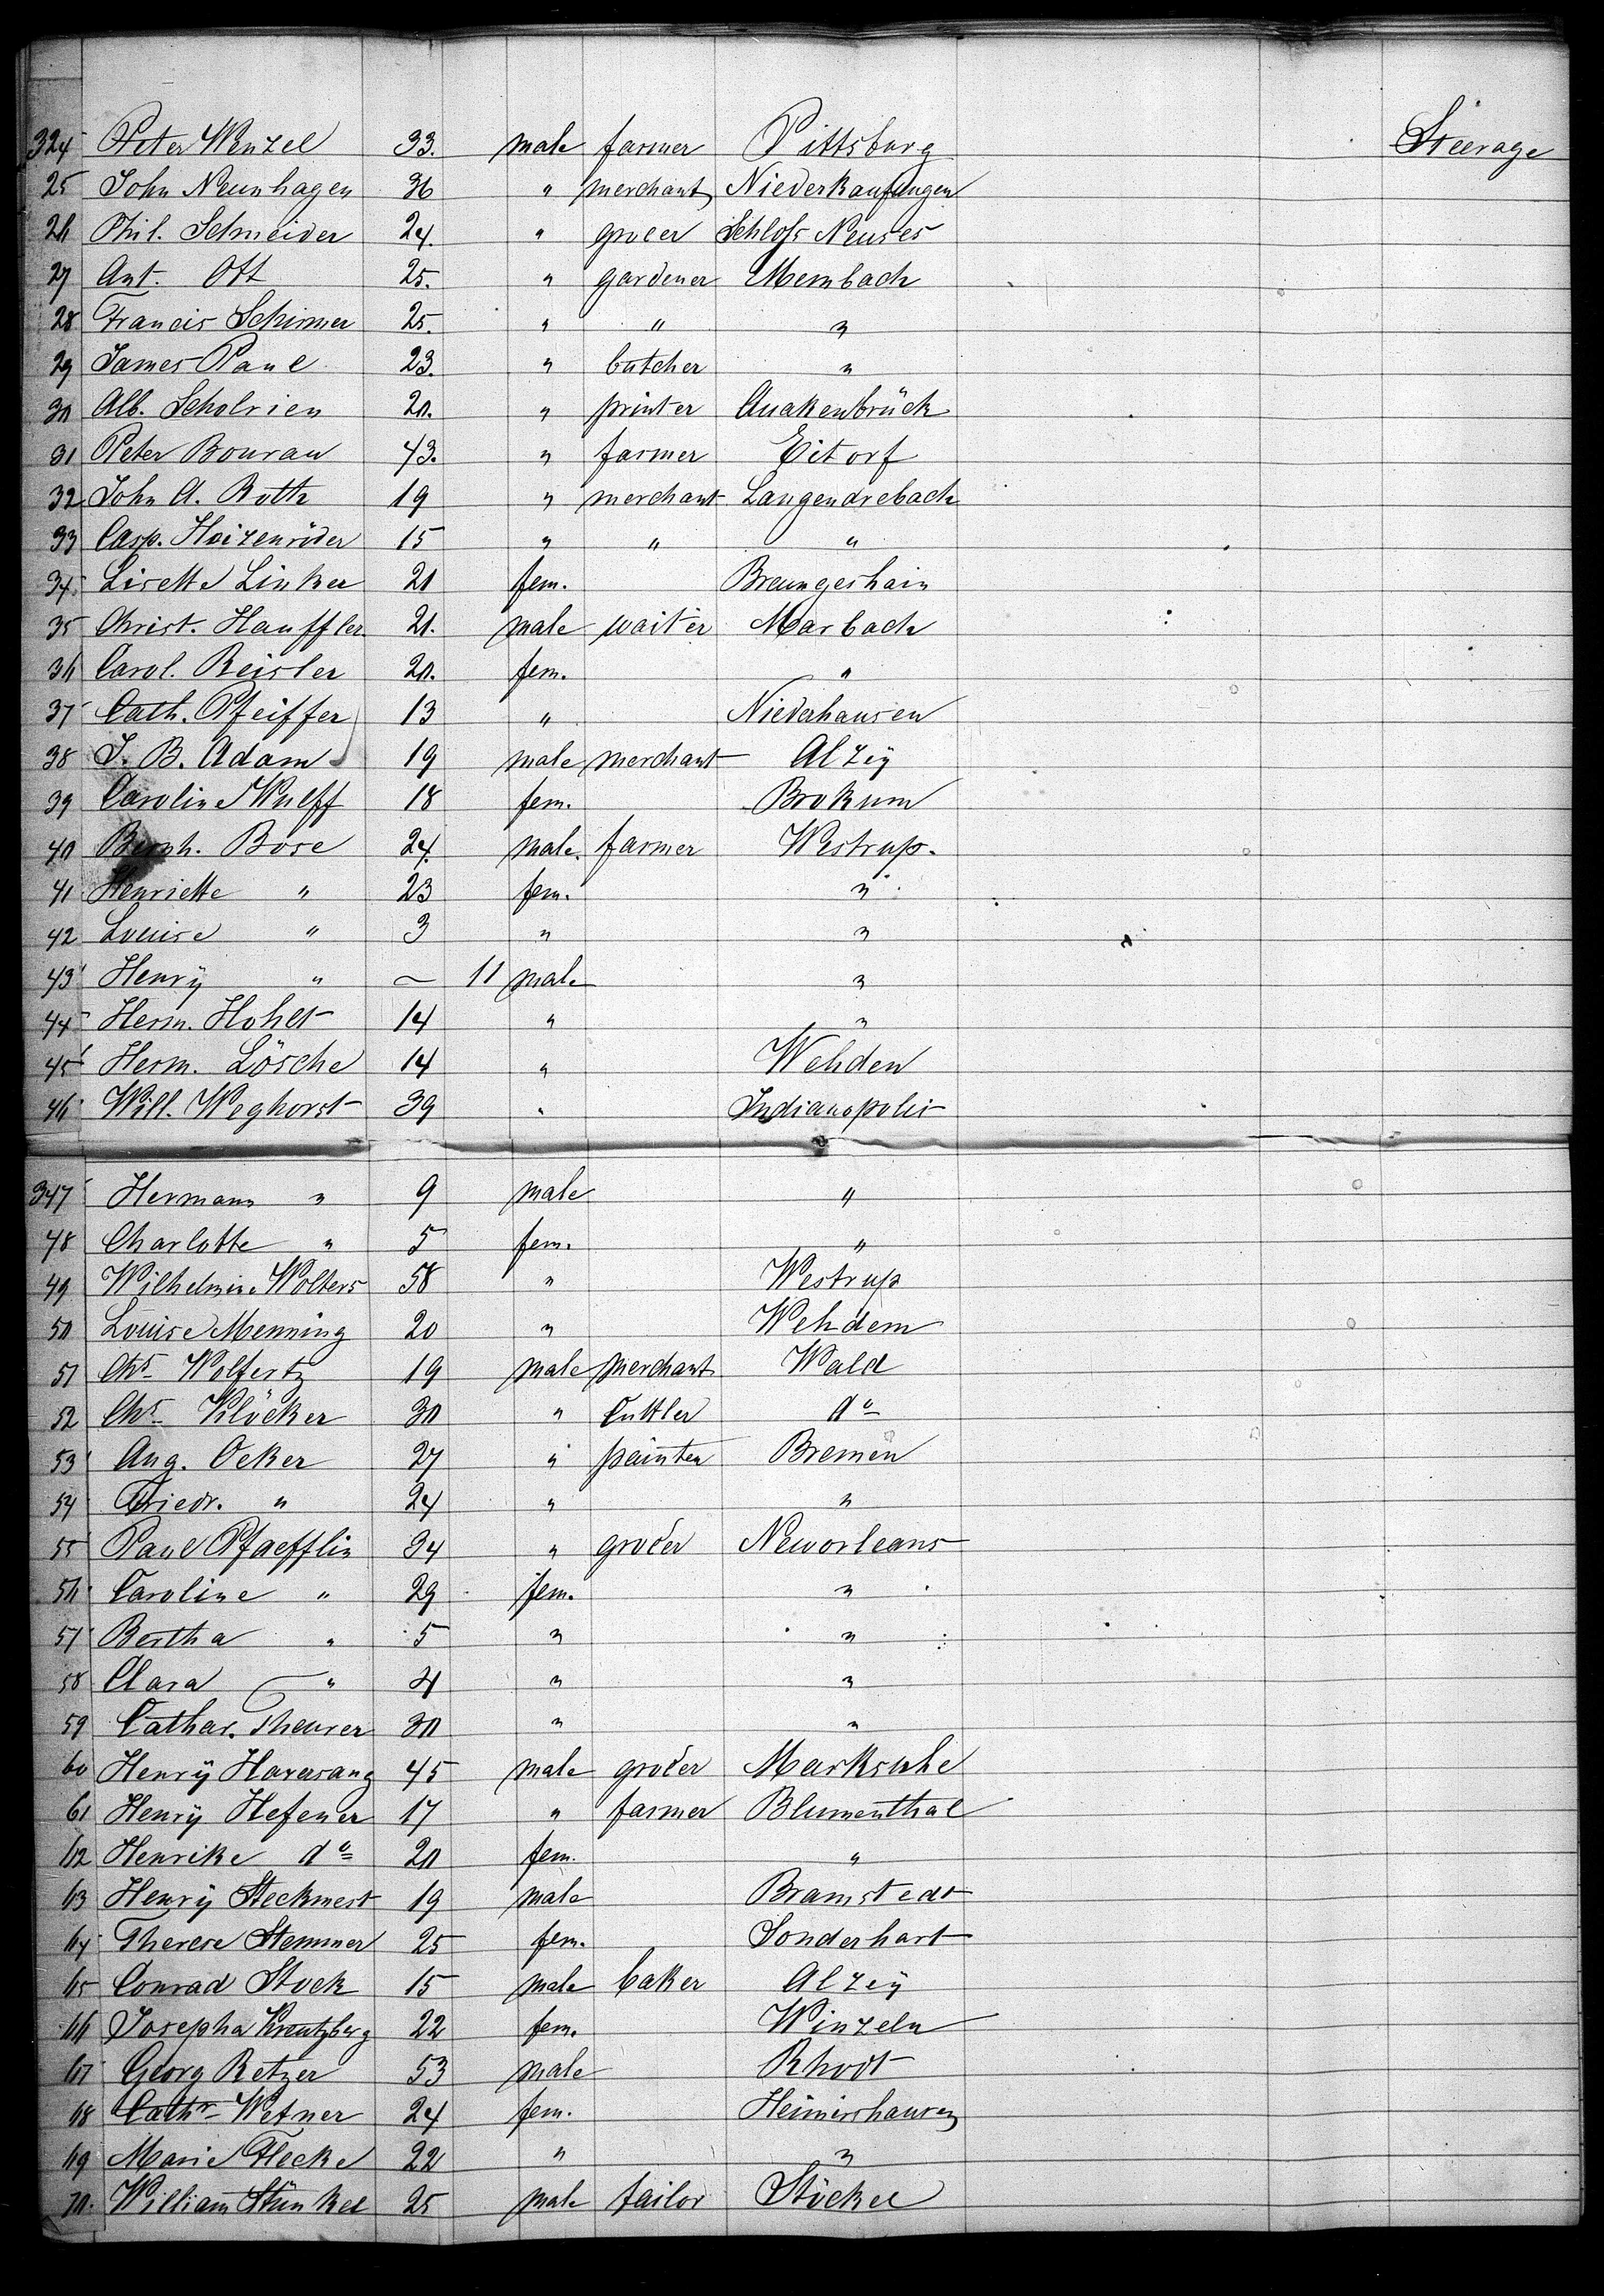 324 Peter Wenzel 33. male farmer Pittsburg Steerage
25 John Neunhagen 36 " merchant Niederkaufungen
26 Phil. Schneider 24. " grocer Schloss Neuses
27 Ant. Ott 25. " gardener Membach
28 Francis Schirmer 25. " " "
29 James Paul 23. " butcher "
30 Alb. Scholvien 20. " printer Quakenbrück
31 Peter Bourau 43. " farmer Eitorf
32 John A. Roth 19 " merchant Langendrebach
33 Casp. Hoizenröder 15 " " "
34 Lisette Linker 21 fem. Breungeshain
35 Christ. Hauffler 21. male waiter Marbach
36 Carol. Reisler 20. fem. "
37 Cath. Pfeiffer 13 " Niederhausen
38 J. B. Adam 19 male merchant Alzey
39 Caroline Wulff 18 fem. Brokum
40 Bernh. Bose 24. male. farmer Westrup.
41 Henriette " 23 fem. "
42 Louise " 3 " "
43 Henry " ~ 11 male "
44 Herm. Hohlt 14 " "
45 Herm. Lösche 14 " Wehden
46 Will. Weghorst 39 " Indianapolis
347 Hermann " 9 male "
48 Charlotte " 5 fem. "
49 Wilhelmine Wolters 58 " Westrup
50 Louise Menning 20 " Wehdem
51 Chs Wolfertz 19 male merchant Wald
52 Chs Klöcker 30 " Cuttler do
53 Aug. Oeker 27 " painter Bremen
54 Friedr. " 24 " "
55 Paul Pfaefflin 34 " grocer Neworleans
56 Caroline " 29 fem. "
57 Bertha " 5 " "
58 Clara " 4 " "
59 Cathar. Theurer 30 " "
60 Henry Haverang 45 male grocer Marksuhl
61 Henry Hefener 17 " farmer Blumenthal
62 Henrike do 20 fem. "
63 Henry Steckmest 19 male Bramstedt
64 Therese Stemmer 25 fem. Sonderhart
65 Conrad Stock 15 male baker Alzey
66 Josepha Kreutzberg 22 fem. Winzeln
67 Georg Retzer 53 male Rhodt
68 Cathr Wetner 24 fem. Heimershausen
69 Marie Flecke 22 " "
70. William Stünkel 25 male tailor Stöckel